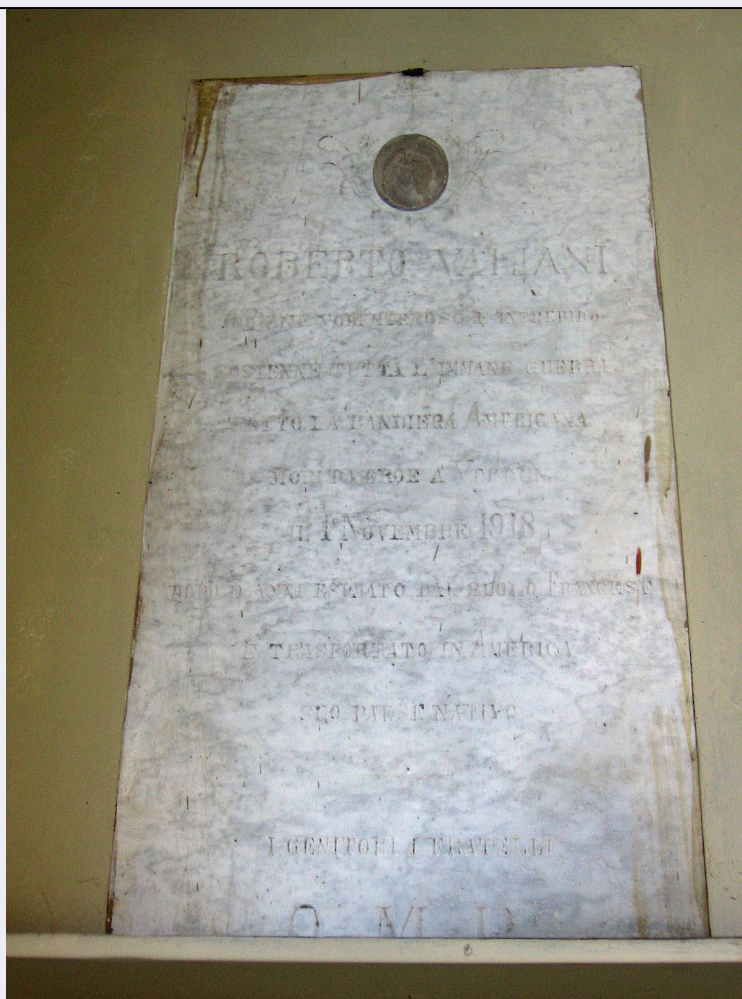 ROBERTO VALIANI
GIOVANE VOLONTEROSO E INTREPIDO
SOSTENNE TUTTA L'IMMANE GUERRA
SOTTO LA BANDIERA AMERICANA
MORÌ DA EROE A VERDUN
IL 1º NOVEMBRE 1918
DOPO ANNI ESUMATO DAL SUOLO FRANCESE
E TRASPORTATO IN AMERICA
SUO PAESE NATIVO
I GENITORI I FRATELLI
Q. M. P.